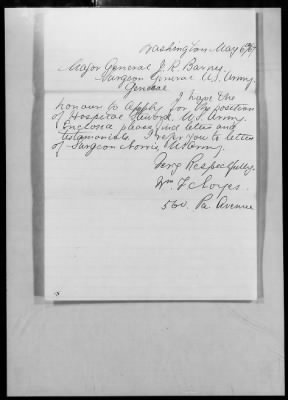 Washington May 6th
Major General J. K. Barnes,
Surgeon General U.S. Army.
General
I have the
honour to apply for the position
of Hospital Steward, U.S. Army.
Enclosed please find letter and
testimonials. I refer you to letter
of Surgeon Norris, U.S. Army.
Very Respectfully,
Wm. F. Noyes.
560. Pa. Avenue